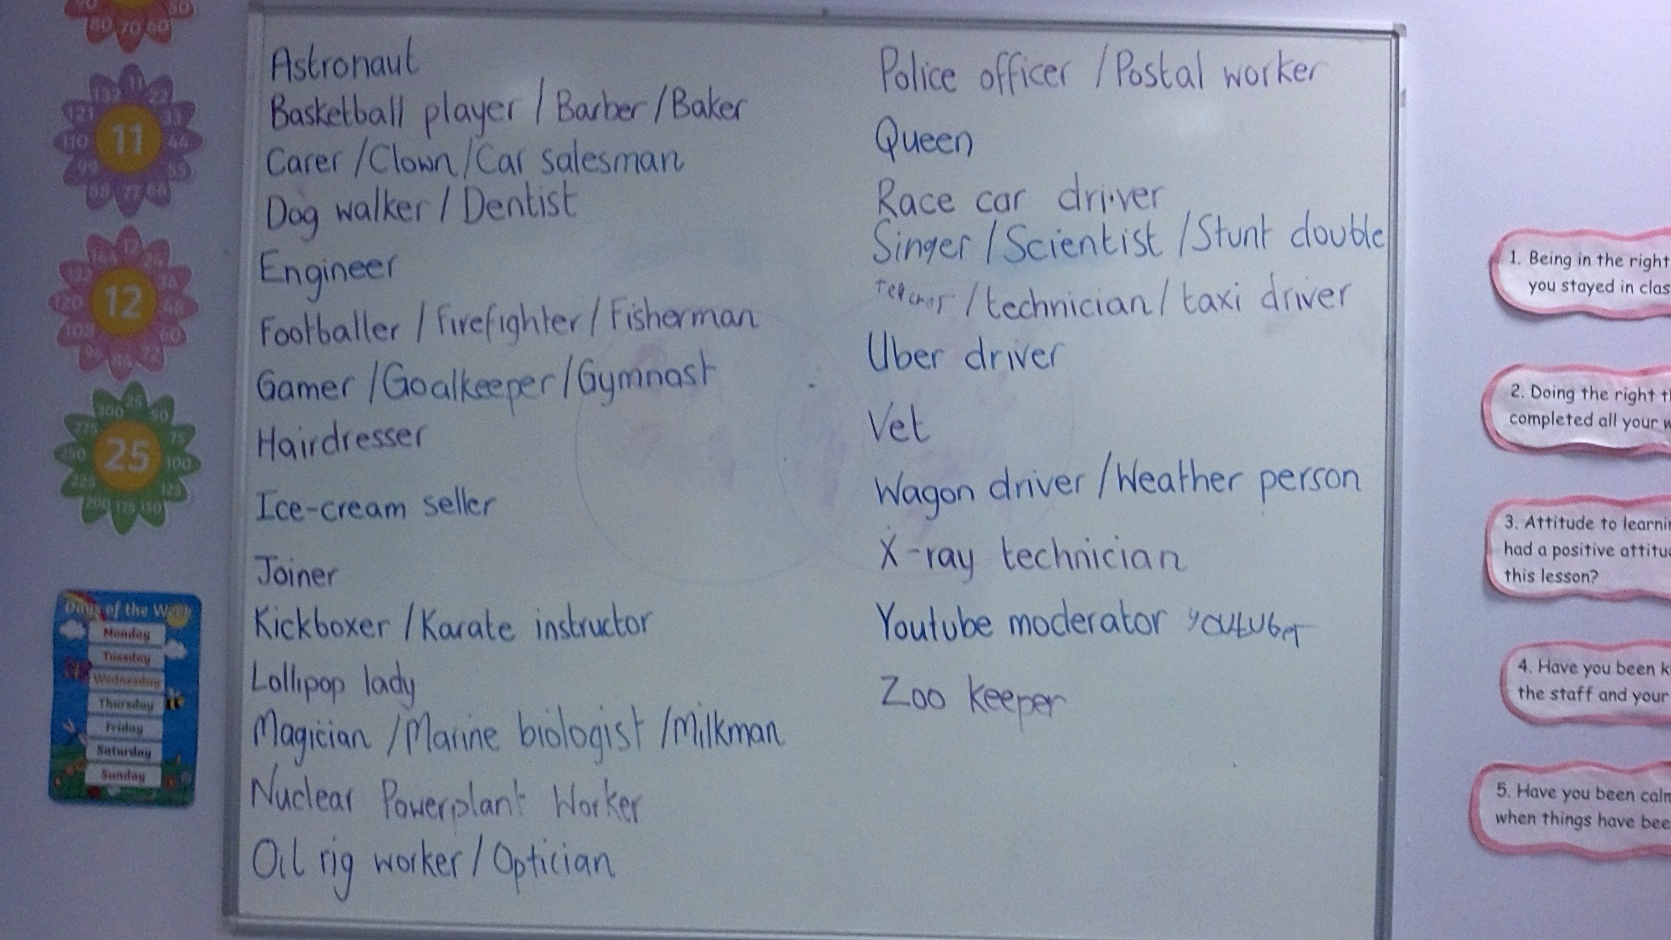 Astronaut
Basketball player / Barber / Baker
Carer / Clown / Car salesman
Dog walker / Dentist
Engineer
Footballer / Firefighter / Fisherman
Gamer / Goalkeeper / Gymnast
Hairdresser
Ice-cream seller
Joiner
Kickboxer / Karate instructor
Lollipop lady
Magician / Marine biologist / Milkman
Nuclear Powerplant Worker
Oil rig worker / Optician
Police officer / Postal worker
Queen
Race car driver
Singer / Scientist / Stunt double
/ technician / taxi driver
Uber driver
Vet
Wagon driver / Weather person
X-ray technician
Youtube moderator youtuber
Zoo keeper
80 70 60
11
12
25
Days of the Week
Monday
Tuesday
Wednesday
Thursday
Friday
Saturday
Sunday
1. Being in the right
you stayed in clas
2. Doing the right th
completed all your w
3. Attitude to learnin
had a positive attitud
this lesson?
4. Have you been k
the staff and your
5. Have you been calm
when things have bee